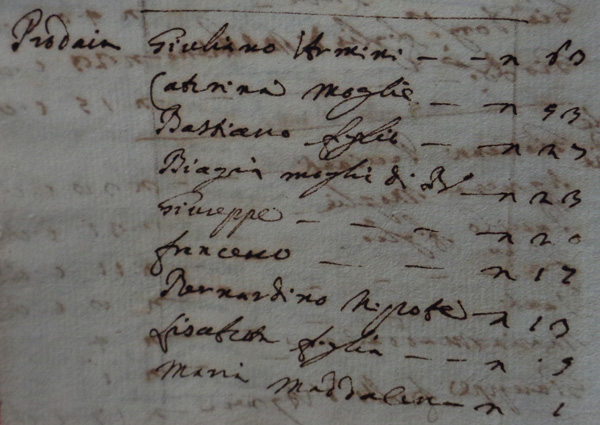 Prodaia Giuliano Armini - - n 63
Caterina moglie - - n 53
Bastiano figlio - n 27
Biagia moglie di B.º - n 23
Giuseppe - - - n 20
francesco - - - n 17
Bernardino Nipote - n 13
lisabetta figlia - - n 9
Maria Maddalena - n 1